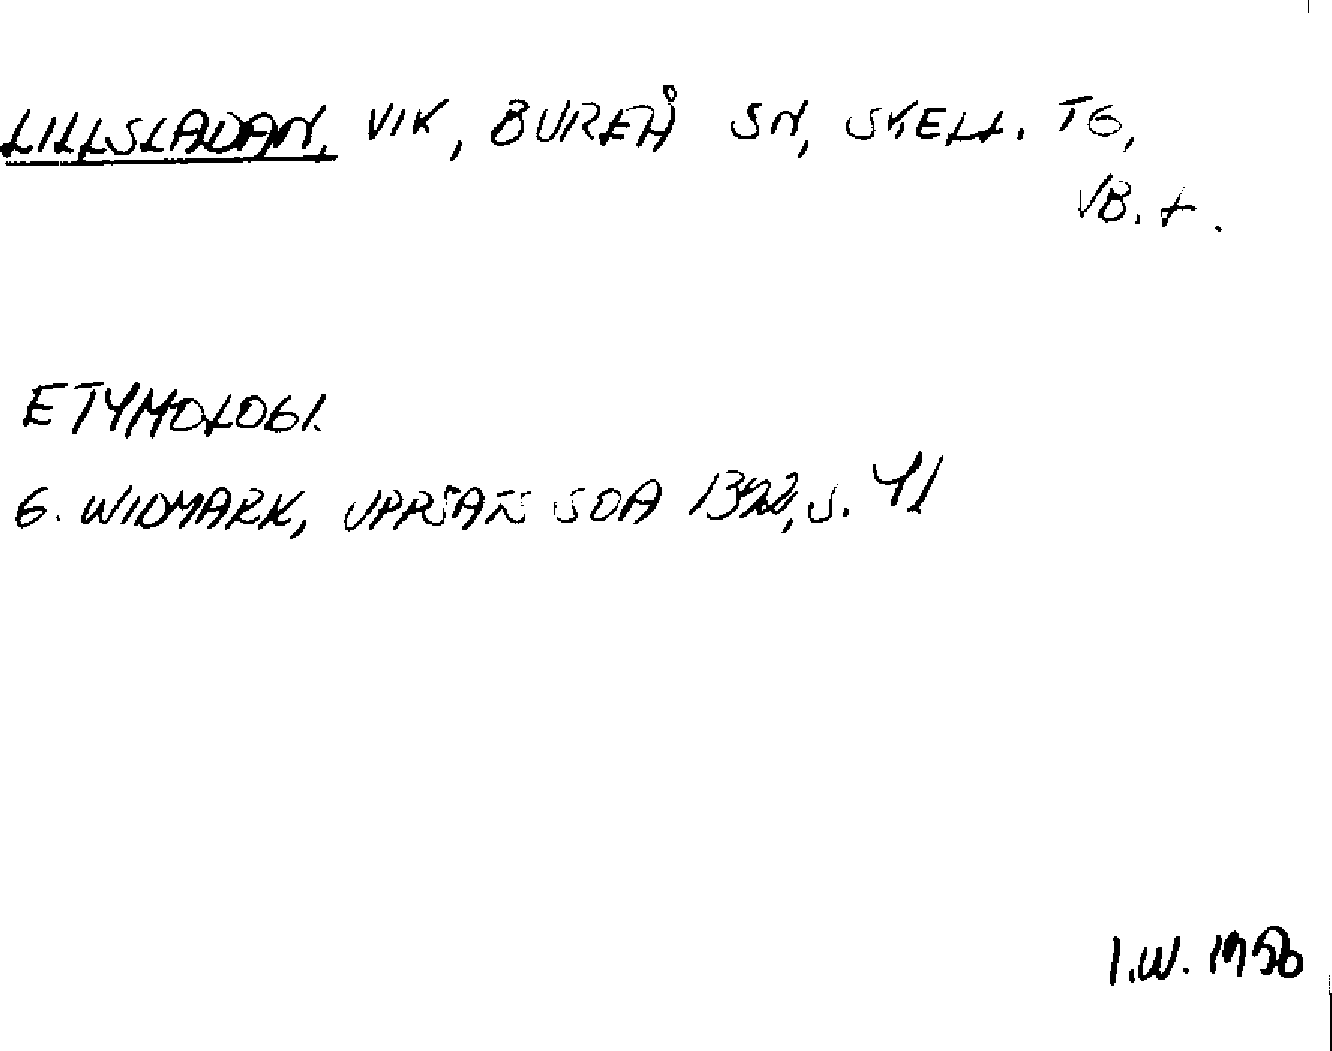 LILLSLADAN, VIK, BUREÅ SN, SKELL. TG,
VB. L.
ETYMOLOGI.
G. WIDMARK, UPPSATS SOA S. 41
I.W.